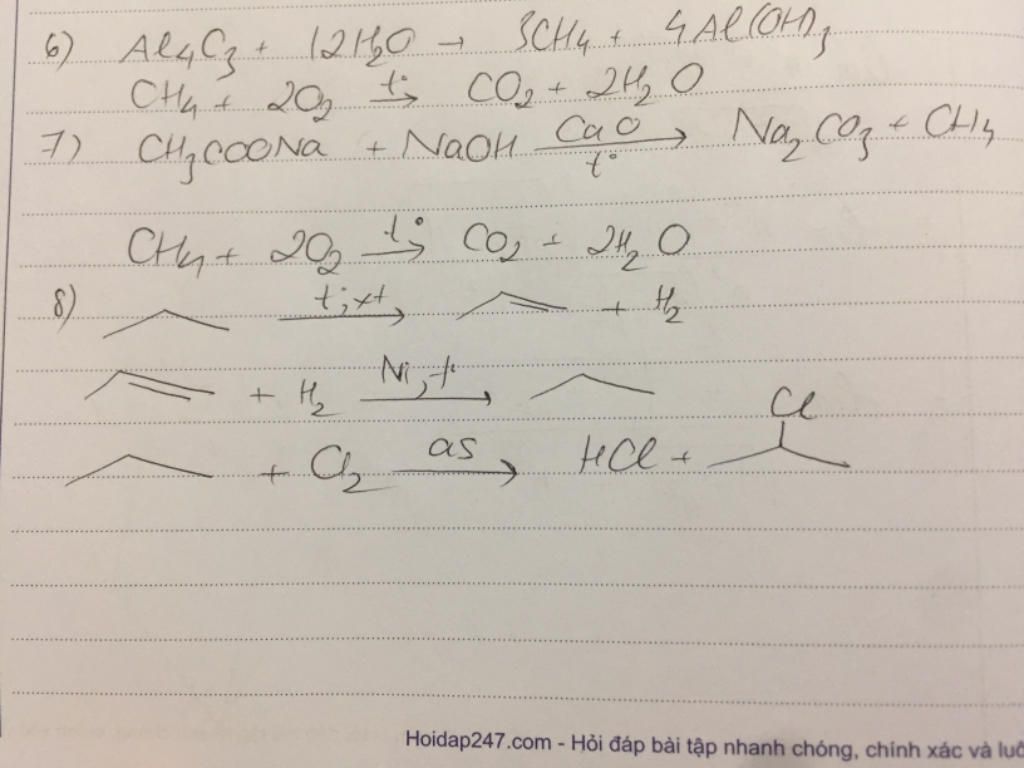 6) Al₄C₃ + 12H₂O → 3CH₄ + 4Al(OH)₃
CH₄ + 2O₂ →(t°) CO₂ + 2H₂O
7) CH₃COONa + NaOH →(CaO, t°) Na₂CO₃ + CH₄
CH₄ + 2O₂ →(t°) CO₂ + 2H₂O
8) →(t; xt) + H₂
+ H₂ →(Ni, t°)
+ Cl₂ →(as) HCl + Cl
Hoidap247.com - Hỏi đáp bài tập nhanh chóng, chính xác và luô